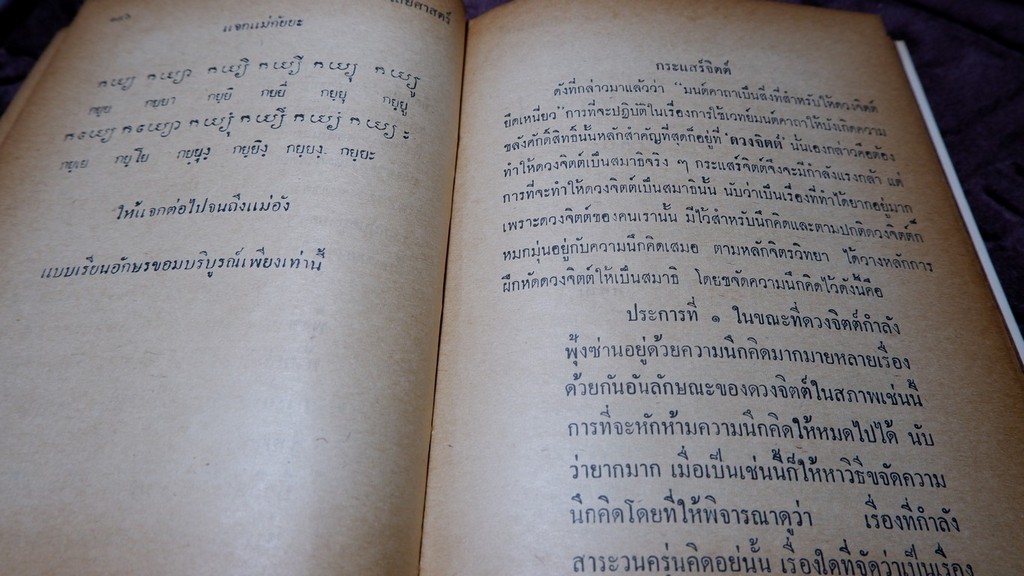 ๑๙๖
ไสยศาสตร์
แจกแม่กัยยะ
กยฺย กยฺยา กยฺยิ กยฺยี กยฺยุ กยฺยู
กยฺเย กยฺโย กยฺยุํ กยฺยึ กยฺยํ กยฺยะ
ให้แจกต่อไปจนถึงแม่อัง
แบบเรียนอักษรขอมบริบูรณ์เพียงเท่านี้
กระแสร์จิตต์
ดังที่กล่าวมาแล้วว่า "มนต์คาถาเป็นสิ่งที่สำหรับให้ดวงจิตต์
ยึดเหนี่ยว" การที่จะปฏิบัติในเรื่องการใช้เวทย์มนต์คาถาให้บังเกิดความ
ขลังศักดิ์สิทธิ์นั้นหลักสำคัญที่สุดก็อยู่ที่ "ดวงจิตต์" นั่นเองกล่าวคือต้อง
ทำให้ดวงจิตต์เป็นสมาธิจริง ๆ กระแสร์จิตต์จึงจะมีกำลังแรงกล้า แต่
การที่จะทำให้ดวงจิตต์เป็นสมาธินั้น นับว่าเป็นเรื่องที่ทำได้ยากอยู่มาก
เพราะดวงจิตต์ของคนเรานั้น มีไว้สำหรับนึกคิดและตามปกติดวงจิตต์ก็
หมกมุ่นอยู่กับความนึกคิดเสมอ ตามหลักจิตรวิทยา ได้วางหลักการ
ฝึกหัดดวงจิตต์ให้เป็นสมาธิ โดยขจัดความนึกคิดไว้ดังนี้คือ
ประการที่ ๑ ในขณะที่ดวงจิตต์กำลัง
ฟุ้งซ่านอยู่ด้วยความนึกคิดมากมายหลายเรื่อง
ด้วยกันอันลักษณะของดวงจิตต์ในสภาพเช่นนี้
การที่จะหักห้ามความนึกคิดให้หมดไปได้ นับ
ว่ายากมาก เมื่อเป็นเช่นนี้ก็ให้หาวิธีขจัดความ
นึกคิดโดยที่ให้พิจารณาดูว่า เรื่องที่กำลัง
สาระวนครุ่นคิดอยู่นั้น เรื่องใดที่จัดว่าเป็นเรื่อง